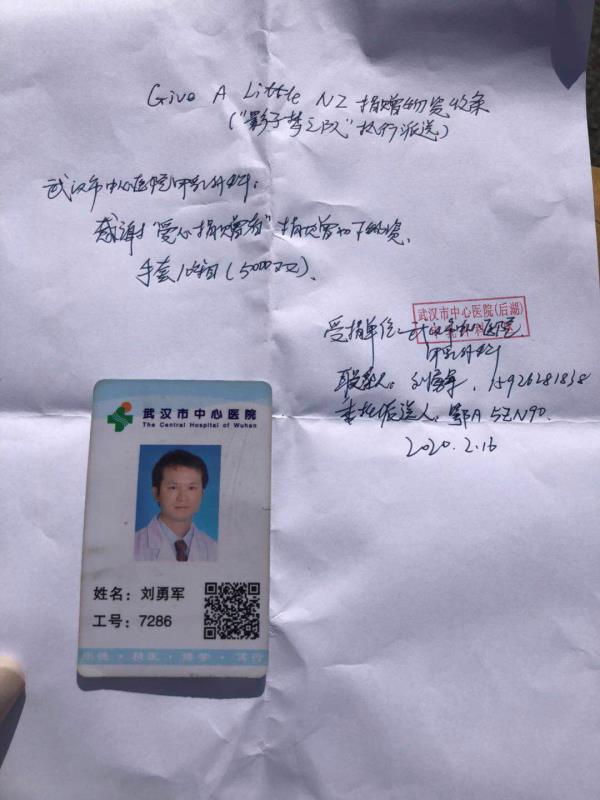 Give A Little NZ 捐赠物资收条
("影子梦之队"执行派送)
武汉市中心医院甲乳外科:
感谢"爱心捐赠者"捐赠如下物资.
手套 箱(5000双).
武汉市中心医院(后湖)
受捐单位:武汉市中心医院
甲乳外科
联系人:刘勇军,15926281838
派送人:鄂A 5ZN90.
2020.2.16
武汉市中心医院
The Central Hospital of Wuhan
姓名:刘勇军
工号:7286
博学·笃行